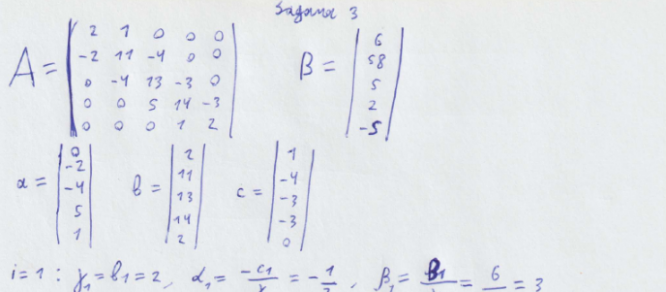 Задача 3
A = | 2 1 0 0 0 | B = | 6 |
| -2 11 -4 0 0 | | 58 |
| 0 -4 13 -3 0 | | 5 |
| 0 0 5 14 -3 | | 2 |
| 0 0 0 1 2 | | -5 |
a = | 0 -2 -4 5 1 | b = | 2 11 13 14 2 | c = | 1 -4 -3 -3 0 |
i=1 : γ₁ = b₁ = 2, α₁ = -c₁/γ = -1/2, β₁ = B₁/ = 6/ = 3